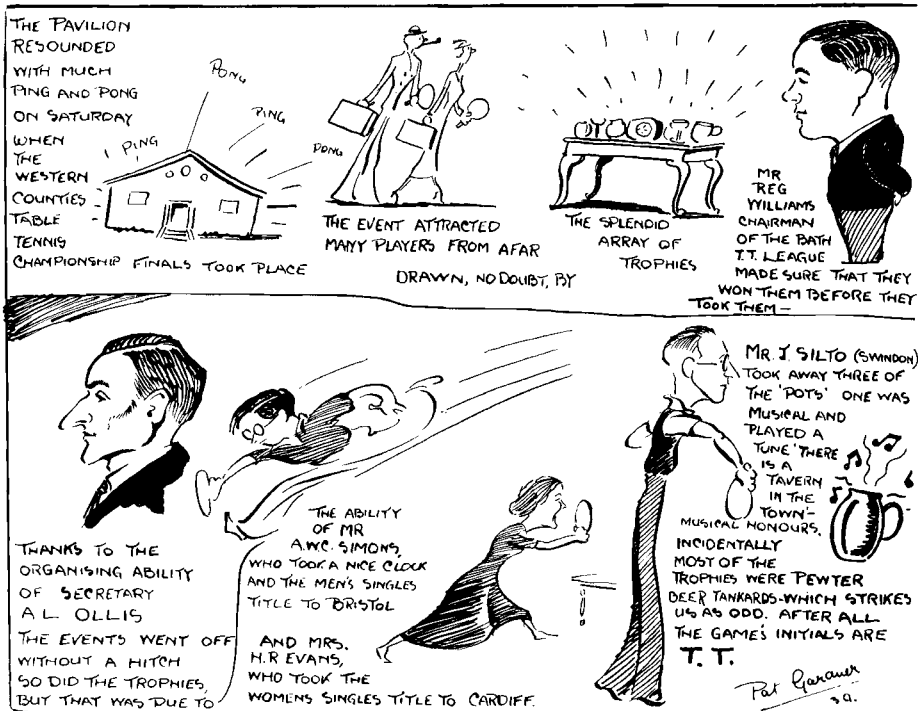 THE PAVILION
RESOUNDED
WITH MUCH
PING AND PONG
ON SATURDAY
WHEN
THE
WESTERN
COUNTIES
TABLE
TENNIS
CHAMPIONSHIP FINALS TOOK PLACE
PONG
PING
PING
PONG
THE EVENT ATTRACTED
MANY PLAYERS FROM AFAR
DRAWN, NO DOUBT, BY
THE SPLENDID
ARRAY OF
TROPHIES
MR
REG
WILLIAMS
CHAIRMAN
OF THE BATH
T.T. LEAGUE
MADE SURE THAT THEY
WON THEM BEFORE THEY
TOOK THEM —
THANKS TO THE
ORGANISING ABILITY
OF SECRETARY
A L OLLIS
THE EVENTS WENT OFF
WITHOUT A HITCH
SO DID THE TROPHIES,
BUT THAT WAS DUE TO
THE ABILITY
OF MR
A.W.C. SIMONS,
WHO TOOK A NICE CLOCK
AND THE MEN'S SINGLES
TITLE TO BRISTOL
AND MRS.
H.R EVANS,
WHO TOOK THE
WOMENS SINGLES TITLE TO CARDIFF.
MR. J. SILTO (SWINDON)
TOOK AWAY THREE OF
THE 'POTS' ONE WAS
MUSICAL AND
PLAYED A
TUNE 'THERE
IS A
TAVERN
IN THE
TOWN'–
MUSICAL HONOURS.
INCIDENTALLY
MOST OF THE
TROPHIES WERE PEWTER
BEER TANKARDS–WHICH STRIKES
US AS ODD. AFTER ALL
THE GAME'S INITIALS ARE
T. T.
Pat Garauer